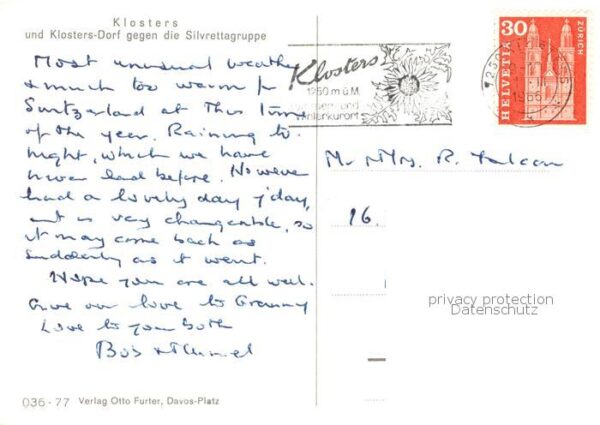 Klosters
und Klosters-Dorf gegen die Silvrettagruppe
Most unusual weather
& much too warm for
Switzerland at this time
of the year. Raining to-
night, which we have
never had before. However
had a lovely day y'day,
but is very changeable, so
it may come back as
suddenly as it went.
Hope you are all well.
Give our love to Granny
Love to you both
Bob &
036 - 77 Verlag Otto Furter, Davos-Platz
Klosters
1250 m ü.M.
und
Winterkurort
30
HELVETIA
ZÜRICH
Mr & Mrs. R.
16.
privacy protection
Datenschutz